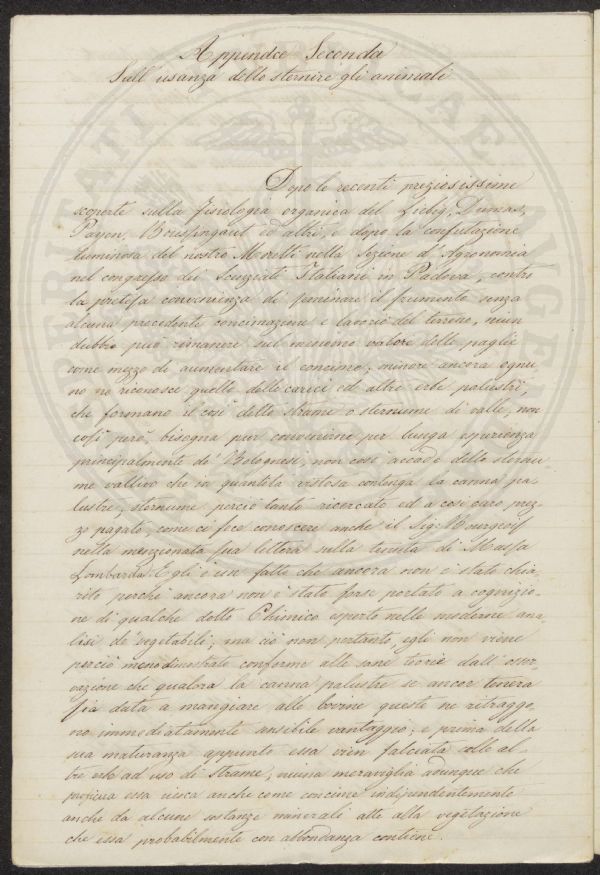 Appendce Seconda
Sull' usanza dello sternire gli animali
Dopo le recenti preziosissime
scoperte sulla fisiologia organica del Liebig, Dumas,
Payen, Boussingault ed altri, e dopo la confutazione
luminosa del nostro Moretti nella Sezione d' Agronomia
nel congresso dei Scienziati Italiani in Padova, contro
la pretesa convenienza di seminare il frumento senza
alcuna precedente concimazione e lavoro del terreno, niun
dubbio può rimanere sul menomo valore delle paglie
come mezzo di aumentare il concime; minore ancora ognu
no ne riconosce quello delle carici ed altre erbe palustri,
che formano il così detto strame o sternume di valle, non
così però, bisogna pur convenirne per lunga esperienza
principalmente de' Bolognesi, non così accade dello sternu
me vallivo che in quantità vistosa contenga la canna pa-
lustre, sternume perciò tanto ricercato ed a così caro prez
zo pagato, come ci fece conoscere anche il Sig. Bourgeois
nella menzionata sua lettera sulla tenuta di Massa
Lombarda. Egli è un fatto che ancora non è stato chia-
rito perchè ancora non è stato forse portato a cognizio-
ne di qualche dotto Chimico esperto nelle moderne ana-
lisi de' vegetabili; ma ciò non pertanto egli non viene
perciò meno dimostrato conforme alle sane teorie dall' osser-
vazione che qualora la canna palustre se ancor tenera
sia data a mangiare alle bovine queste ne ritraggo
no immediatamente sensibile vantaggio; e prima della
sua maturanza appunto essa vien falciata colle al-
tre erbe ad uso di strame, niuna meraviglia adunque che
proficua essa riesca anche come concime indipendentemente
anche da alcune sostanze minerali atte alla vegetazione
che essa probabilmente con abbondanza contiene.